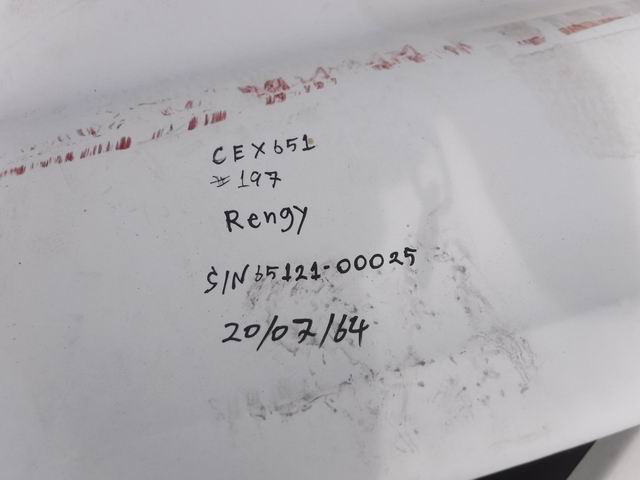 CEX651
#197
Rengy
S/N65121-00025
20/07/64